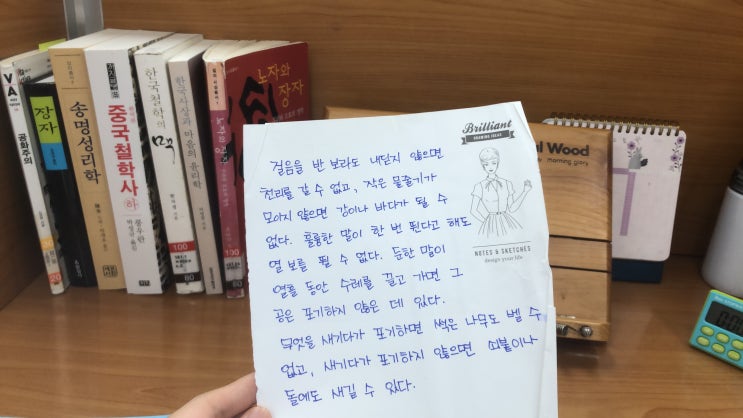 공화주의
장자
송명성리학
중국철학사 下
펑우란
박성규 옮김
한국철학의 맥
한국사상과 마음의 윤리학
노자와 장자
노자와 장자
100
80
100
80
Brilliant
DRAWING IDEAS
걸음을 반 보라도 내딛지 않으면
천리를 갈 수 없고, 작은 물줄기가
모아지 않으면 강이나 바다가 될 수
없다. 훌륭한 말이 한 번 뛴다고 해도
열 보를 뛸 수 없다. 둔한 말이
열흘 동안 수레를 끌고 가면 그
공은 포기하지 않은 데 있다.
무엇을 새기다가 포기하면 썩은 나무도 벨 수
없고, 새기다가 포기하지 않으면 쇠붙이나
돌에도 새길 수 있다.
NOTES & SKETCHES
design your life
Wood
morning glory